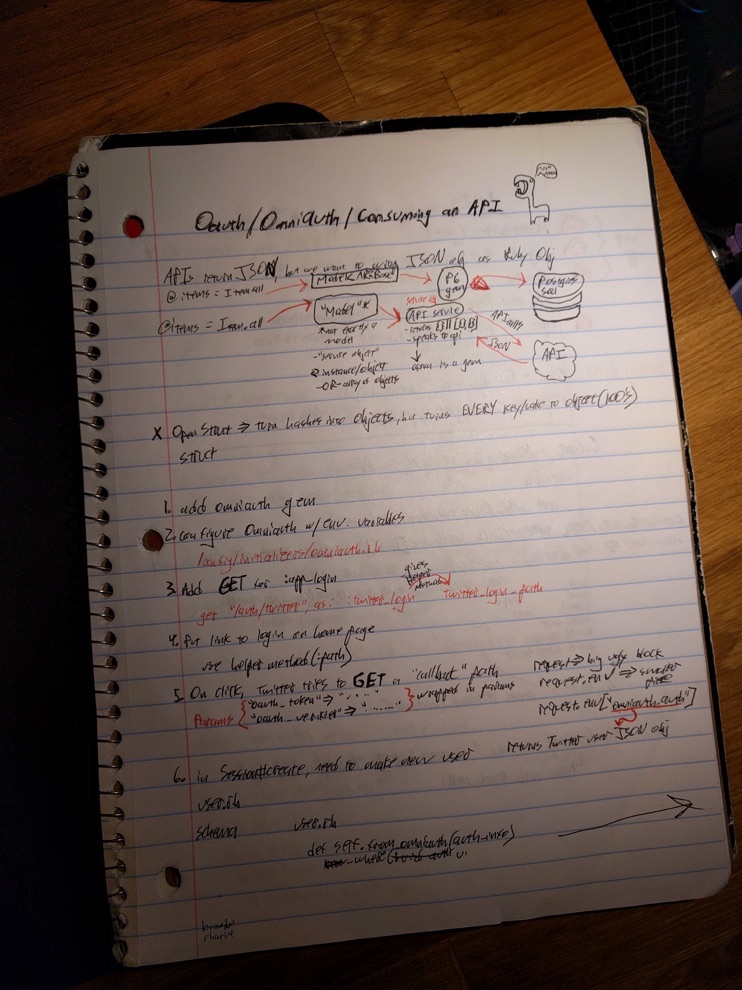 Oauth/Omniauth/Consuming an API
APIs return JSON, but we want to using JSON obj as Ruby Obj
@items = Item.all
Model < ARBase
PG gem
Postgres sql
@items = Item.all
"Model"*
*not exactly a model
-"service object"
@instance/object
-OR- array of objects
API service
- speaks to api
often is a gem
API calls
JSON
API
X Open Struct => turn hashes into objects, but turns EVERY key/value to object (100's)
struct
1. add omniauth gem
2. configure Omniauth w/ env. variables
/config/initializers/omniauth.rb
3. Add GET for :app_login
get "/auth/twitter", as: :twitter_login
gives helper method
twitter_login_path
4. Put link to login on home page
use helper method (:path)
5. On click, Twitter tries to GET a "callback" path
Params { "oauth_token" => "....."
"oauth_verifier" => "....." } wrapped in params
request => big ugly block
request.env => smaller
request.env["omniauth.auth"]
returns Twitter user JSON obj
6. in Session#create, need to make new user
user.rb
schema
user.rb
def self.from_omniauth(auth_info)
where(